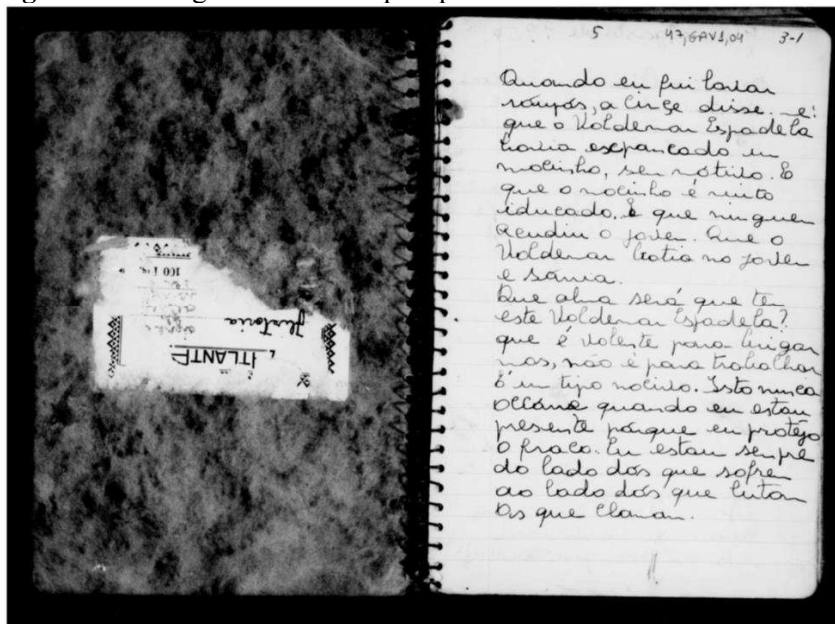 100 Fls.
Historia
ATLANTE
5 47,GAV1,04 3-1
Quando eu fui lavar
roupas, a Circe disse. -e!
que o Voldemar Espadela
havia expancado um
mocinho, sem nótivo. E
que o mocinho é muito
iducado. E que ninguem
acudiu o joven. Que o
Voldemar batia no joven
e sorria.
Que alma será que tem
este Voldemar Espadela?
que é valente para brigar
mas, não é para trabalhar
é um tipo nocivo. Isto nunca
occorre quando eu estou
presente pórque eu protejo
o fraco. Eu estou sempre
do lado dos que sofrem
ao lado dos que lutam
Os que clamam.